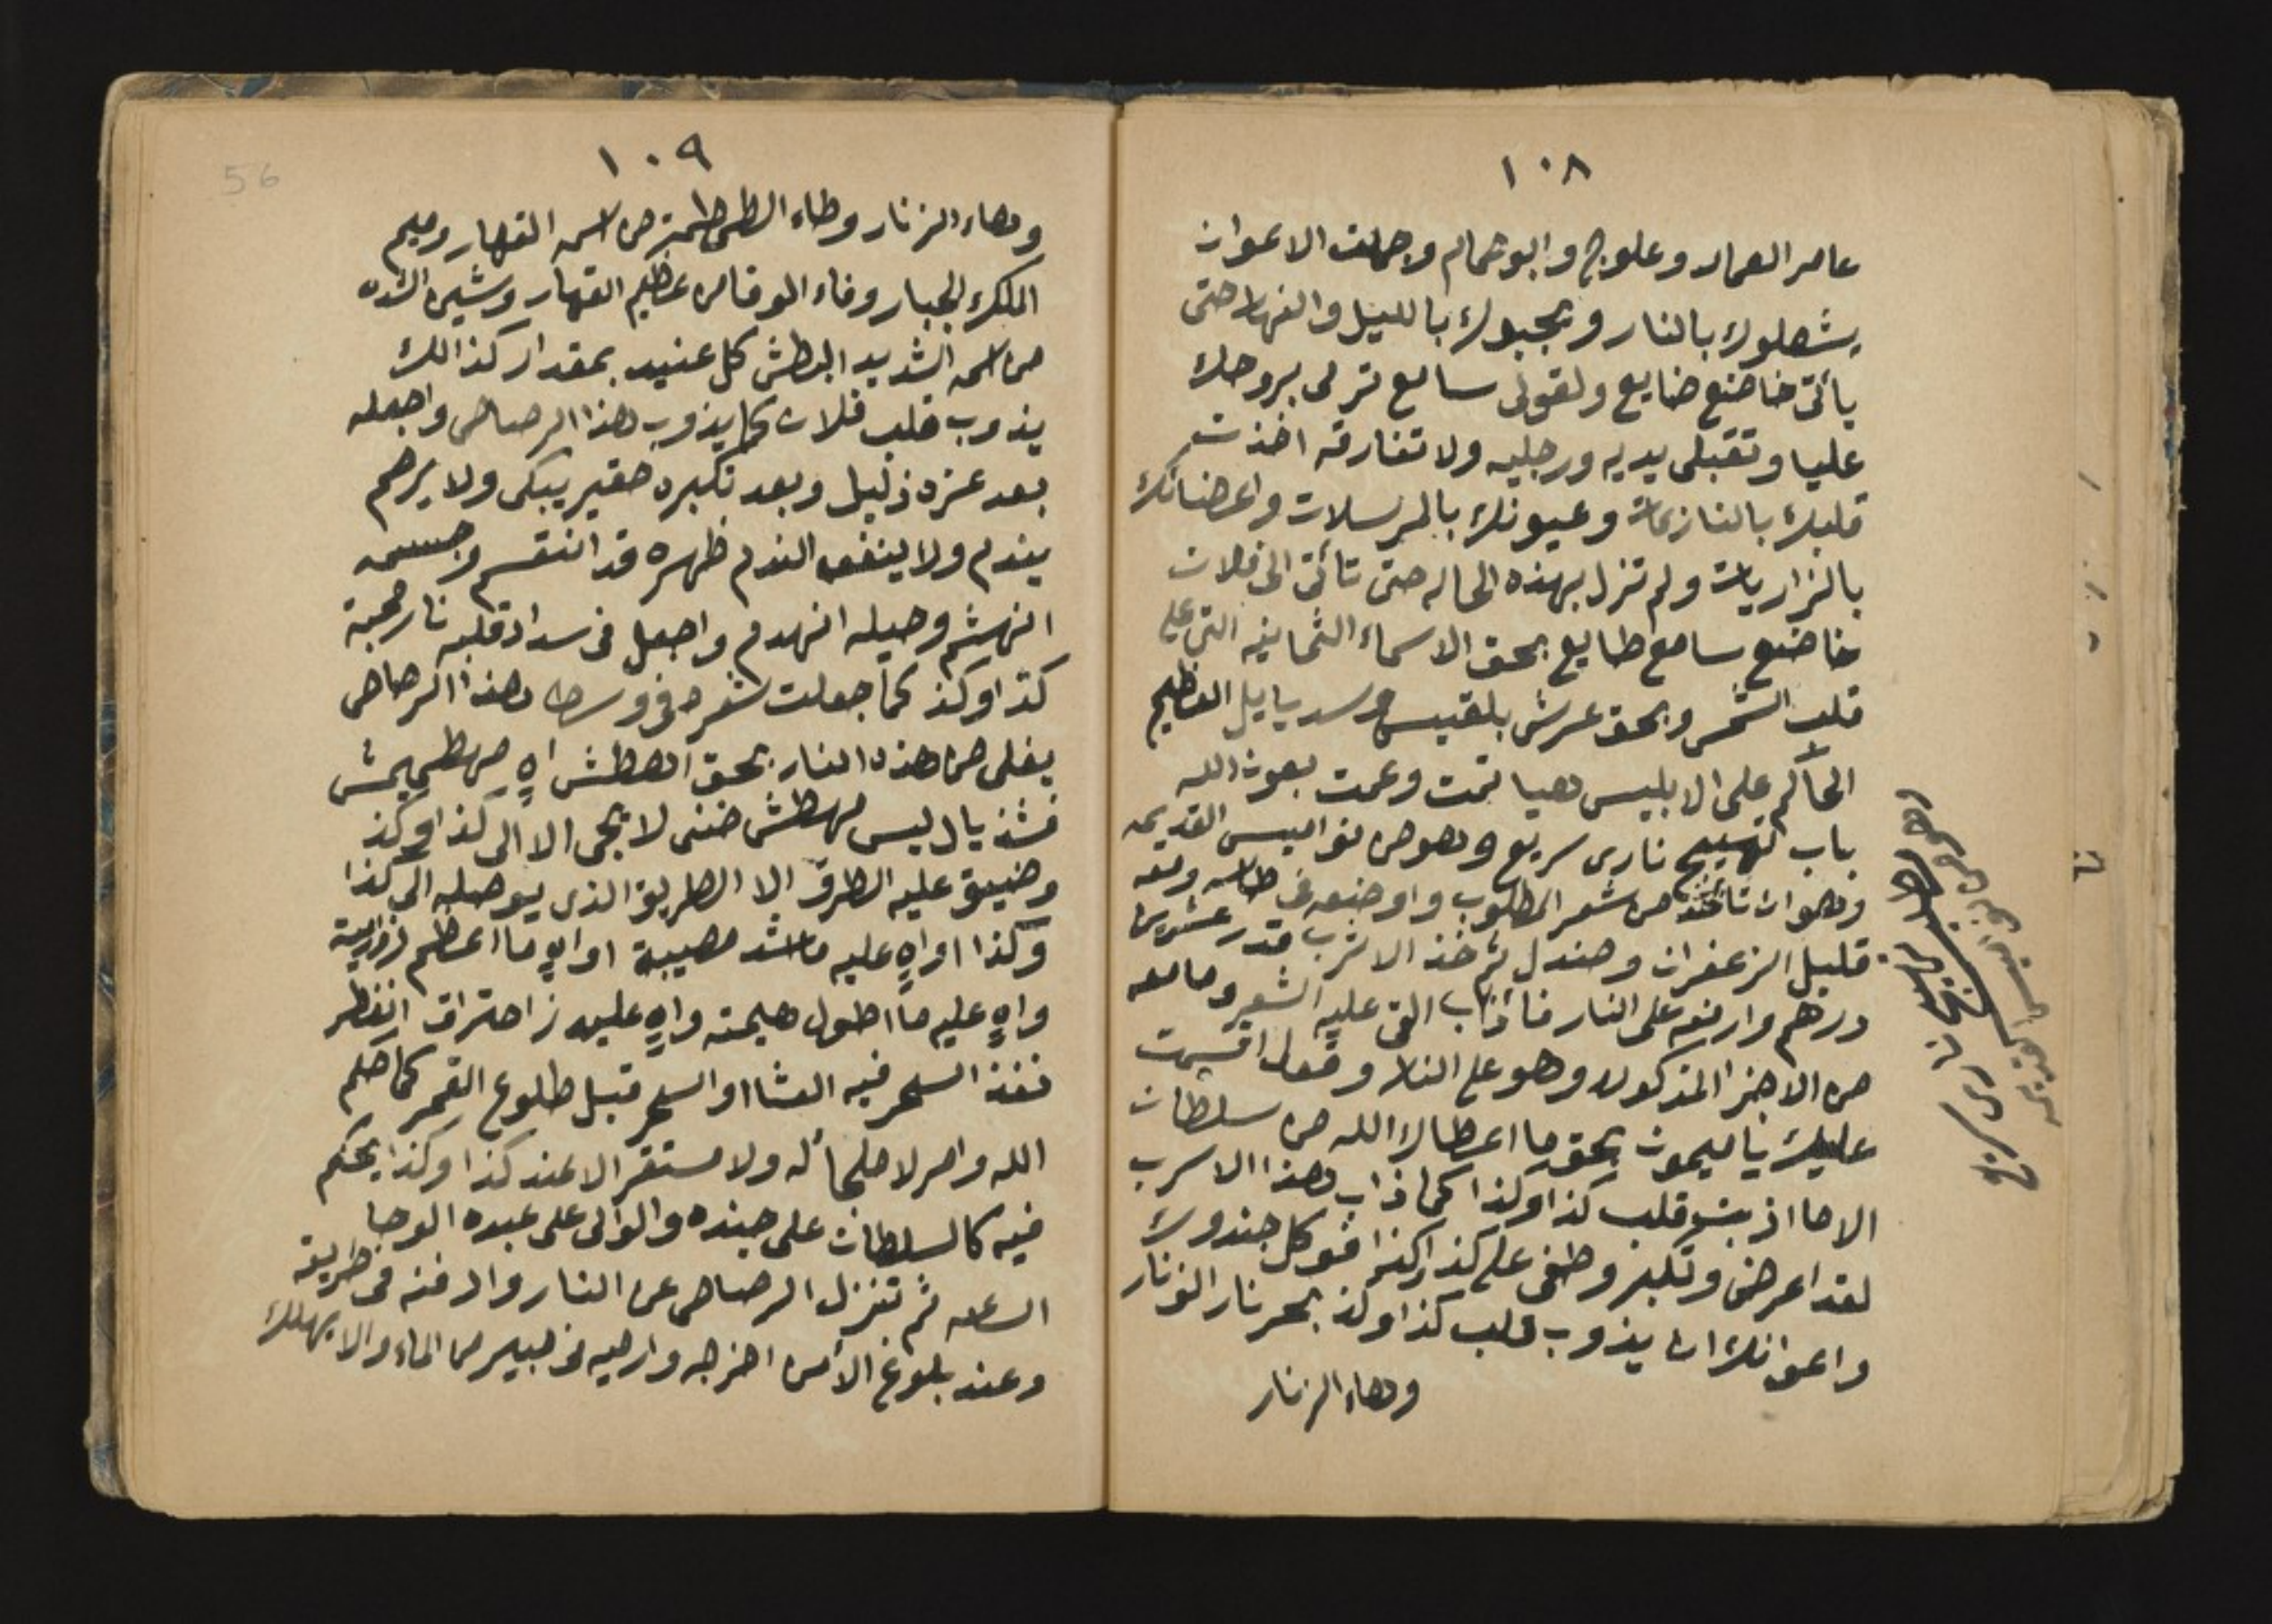 ١٠٨
عامر العمار وعلوج وابو حمام وجملت الاعوان
يشعلوك بالنار ويجبوك بالليل والنهار حتى
يأتى خاضع ضايع ولقولى سامع ترمى بروحك
عليا وتقبلى يديه ورجليه ولا تفارقه اخذت
قلبك بالنازعات وعيونك بالمرسلات واعضائك
بالزاريات ولم تزل بهذه الحاله حتى تأتى الى فلان
خاضع سامع طايع بحق الاسماء الثمانيه التى على
قلب الشمس وبحق عرش بلقيس وسديايل العظيم
الحاكم على الابليس هيا تمت وعمت بعون الله
باب تهييج نارى سريع وهو من نواميس القديمه
وهو ان تأخذ من شعر المطلوب واوضعه فى طاسه ومعه
قليل الزعفران وصندل ثم خذ الاسرب قدر عشرين
درهم وارفعه على النار فأذاب القى عليه الشعر وما معه
من الاجزا المذكوره وهو على النار وقول اقسمت
عليك يا ميمون بحق ما اعطاك الله من سلطان
الا ما اذبت قلب كذا وكذا كما ذاب هذا الاسرب
لقد اعرض وتكبر وطغى على كذا وكذا فوكل جندوك
واعوانك ان يذوب قلب كذا وكذ بحر نار الزنار
وهاء الزنار
باب تهييج نارى سريع
وهو من نواميس القديمه
١٠٩
56
وهاء الزنار وطاء الطمطمة من اسمه القهار وميم
الملك الجبار وفاء الوقا من عظيم القهار وشين الشده
من اسمه الشديد البطش كل عنيد بمقدار كذالك
يذوب قلب فلان كما يذوب هذا الرصاص واجعله
بعد عزه ذليل وبعد تكبره حقير يبكى ولا يرحم
يندم ولا ينفعه الندم ظهره قد انقسم وجسمه
انهشم وحيله انهدم واجعل فى سداد قلبه نار محبة
كذا وكذ كما جعلت شعره فى وسط هذا الرصاص
يغلى من هذه النار بحق اهطش اهٍ مهطميش
فشذ يال ليس مهطش خننى لا يجى الا الى كذا وكذ
وضيق عليه الطرق الا الطريق الذى يوصله الى كذا
وكذا اواهٍ عليه ما اشد مصيبة اواهٍ ما اعظم
واهٍ عليه ما اطول هيمته واهٍ عليه ز احتراق انفطر
نفذ السحر فيه العشا او السحر قبل طلوع القمر كما حلم
الله وامر لا ملجأ له ولا مستقر الا عند كذا وكذا يحكم
فيه كالسلطان على جنده والوالى على عبده الوحا
الساعه ثم تنزل الرصاص عن النار وادفنه فى طريقه
وعند بلوغ الأمر اخرجه وارميه فى جبير من الماء والا يهلك